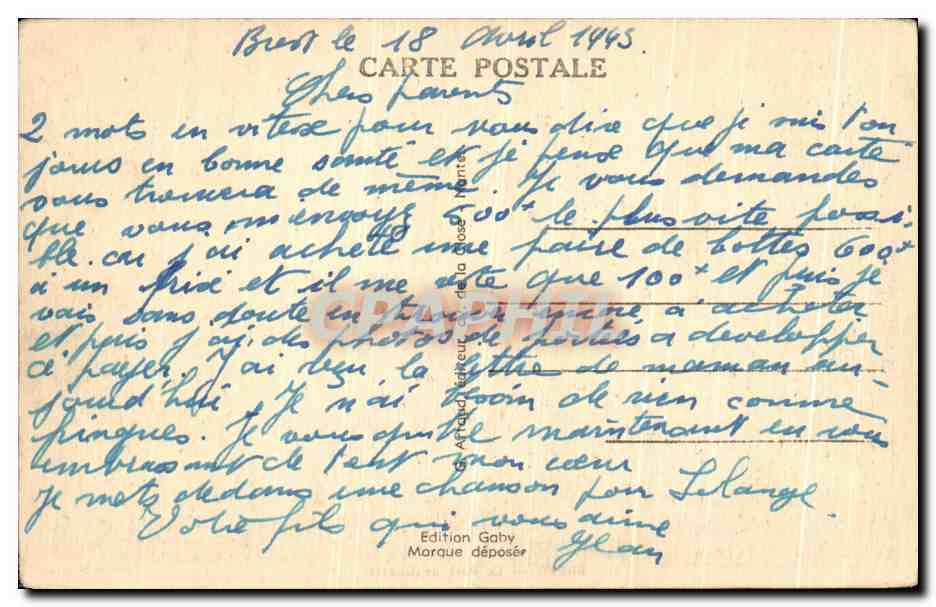 Brest le 18 Avril 1943.
CARTE POSTALE
Chers parents
2 mots en vitesse pour vous dire que je suis tou
jours en bonne santé et je pense que ma carte
vous trouvera de même. Je vous demandes
que vous m'envoyé 500 le plus vite possi
ble car j'ai acheté une paire de bottes 600
à un et il me reste que 100 et puis je
vais sans doute en trouver une à acheter
et puis j'ai des photos de à developper
à payer. J'ai reçu la lettre de maman au-
jourd'hui. Je n'ai besoin de rien comme
fringues. Je vous quitte maintenant en vous
embrassant de tout mon cœur
Je mets dedans une chanson pour Solange.
Votre fils qui vous aime
Jean
G. Artaud, éditeur, de la Close, Nantes
Edition Gaby
Marque déposée
CPAPHIL